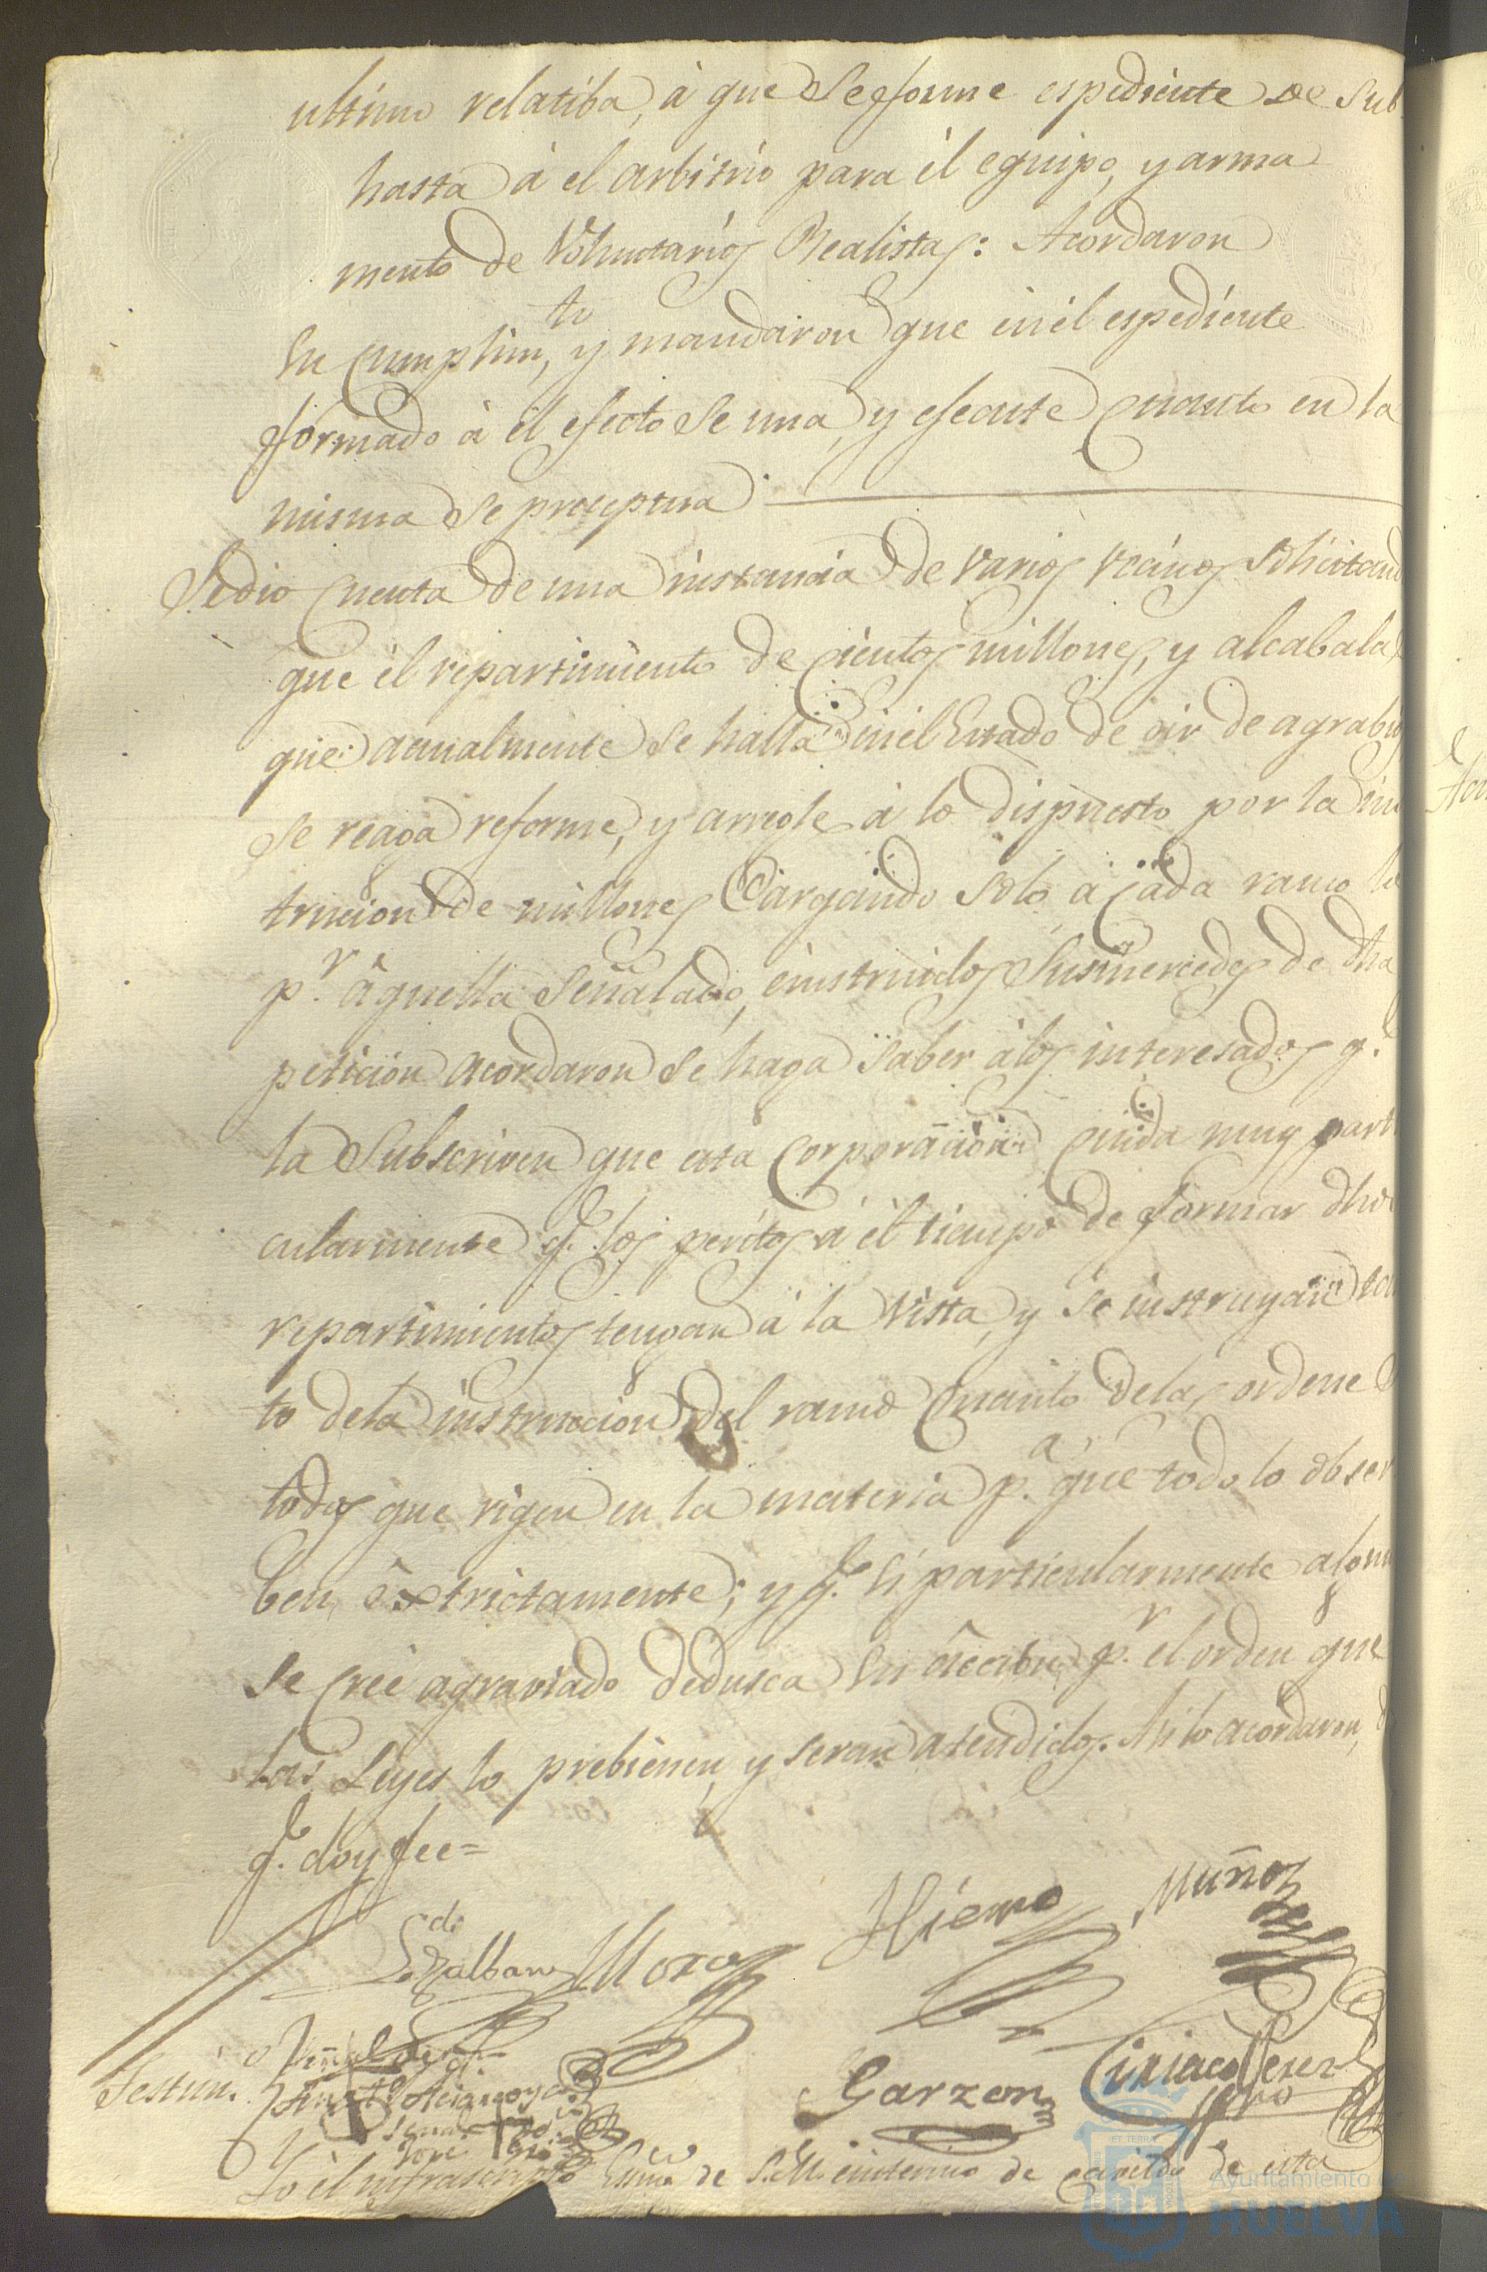 ultimo relatiba, à que Se forme espediente de Sub
hasta à el arbitrio para él equipo, y arma
mento de Voluntarios Realistas: Acordaron
Su Cumplim.to, y mandaron que en él espediente
formado à él efecto Se una, y efecute Cuanto en la
misma Se preceptua
Se dio Cuenta de una instancia de varios vecinos Solicitand
que él repartimiento de Cientos millones, y alcabalas
que actualmente Se halla en él Estado de oir de agrabios
Se reaga reforme, y arregle à lo dispuesto por la ins
trucion de millones Cargando Solo a Cada ramo lo
p.r àquella Señalado, é instruidos Sus mercedes de dha
peticion acordaron Se haga Saber à los interesados q.e
la Subscriven que esta Corporacion Cuida muy parti
cularmente q.e los peritos à él tiempo de formar dhos
repartimientos tengan à la vista, y Se instruyan tan
to de la instruccion del ramo Cuanto de las ordene
todos que rigen en la materia p.a que todo lo obser
ben extrictamente; y q.e Si particularmente alguno
Se Creé agraviado dedusca Su accion p.r el orden que
las Leyes lo prebienen, y Seran atendidos. Asi lo acordaron, d
q.e doy fee=
Ldo Zalbans
Moro
Hierro
Muñoz
Garzon
Ciriaco Perez
Testim.o
Yo él infrascripto Essno de S.M. é interino de Cavildo de esta
Ayuntamiento de
HUELVA